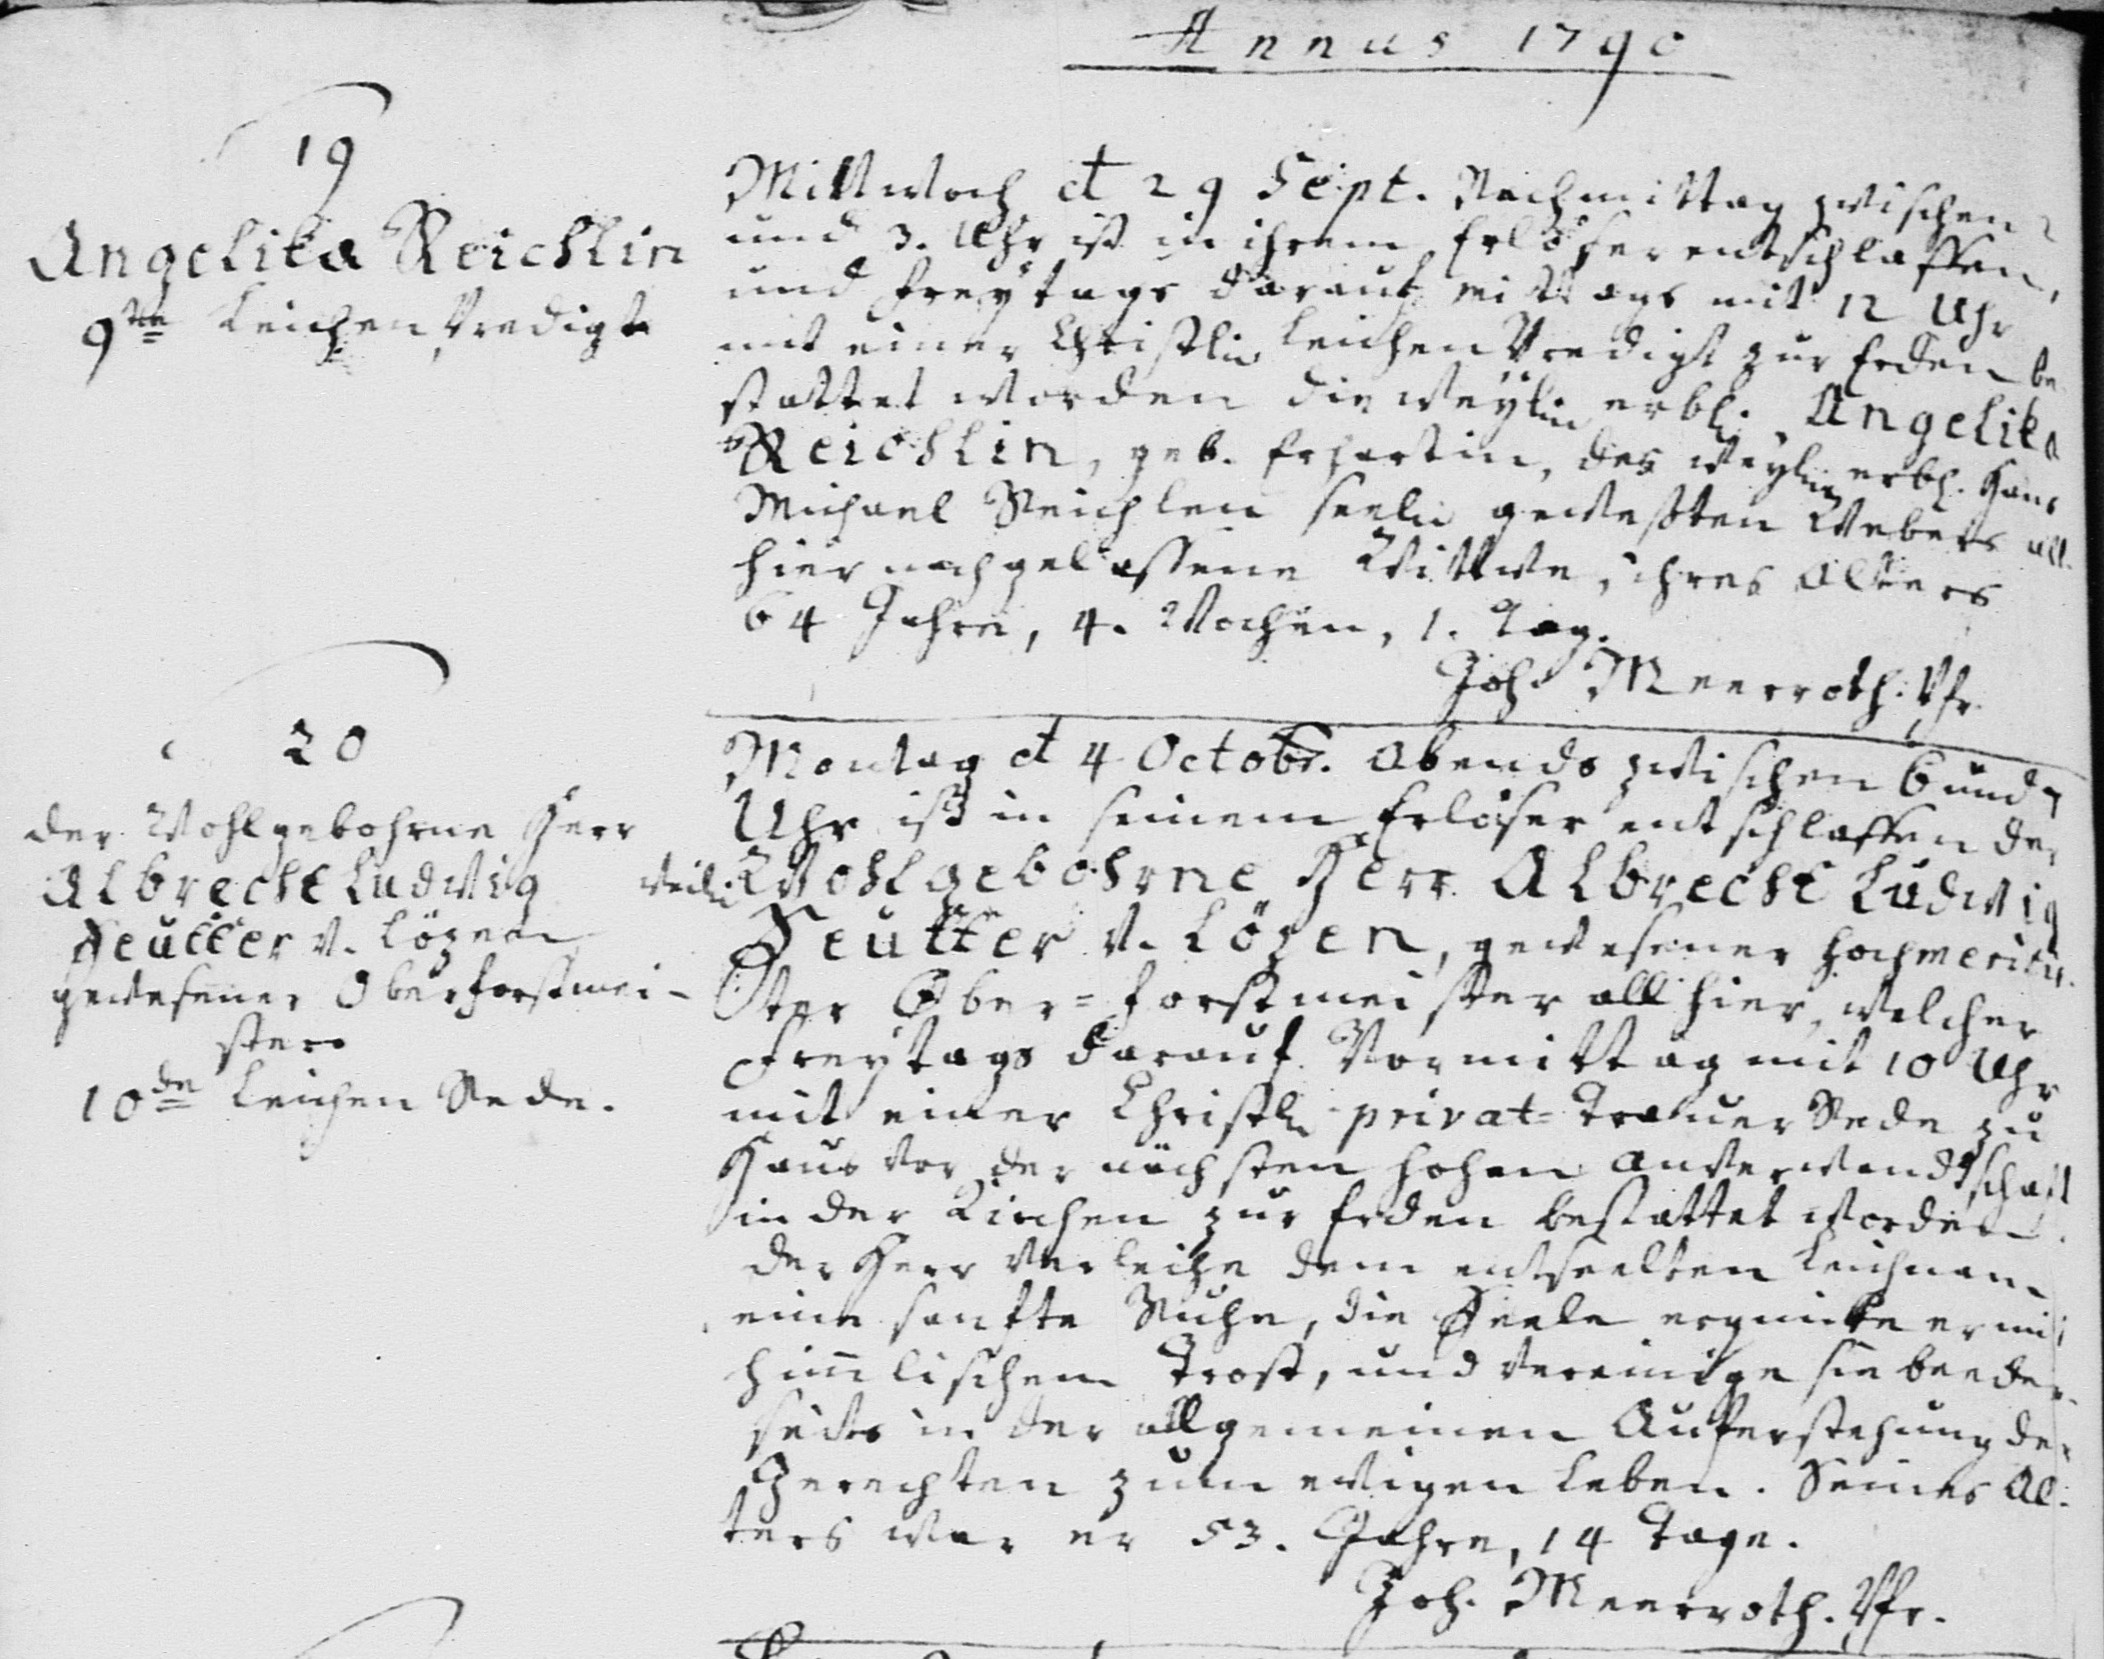 Annus 1790
19
Angelika Reichlin
9te Leichen Predigt
Mittwoch d 29 Sept. Nachmittag zwischen 2
und 3. Uhr ist in ihrem Erlöser entschlaffen,
und Freytags darauf mittags mit 12 Uhr
mit einer Christlin Leichen Predigt zur Erden be
stattet worden die weylin erbl. Angelika
Reichlin, geb. Erhartin, des weylin erbl. Hans
Michael Reichlen seelin gewesten Webers all-
hier nachgelassene Wittwe, ihres Alters
64 Jahre, 4. Wochen, 1. Tag.
Joh. Meerroth. Pfr.
20
der Wohlgebohrne Herr
Albrecht Ludwig
Seutter v. Lözen
gewesener Oberforstmei-
ster
10de Leichen Rede.
Montag d 4 Octobr. Abends zwischen 6 und 7
Uhr ist in seinem Erlöser entschlaffen der
weil. Wohlgebohrne Herr Albrecht Ludwig
Seutter v. Lözen, gewesener hochmeritir-
ter Ober-Forstmeister allhier, welcher
Freytags darauf Vormittag mit 10 Uhr
mit einer Christln privat-Trauer Rede zu
Haus vor der nächsten hohen Anverwandtschaft
in der Kirchen zur Erden bestattet worden.
der Herr verleihe dem entseelten Leichnam
eine sanfte Ruhe, die Seele erquicke er mit
him̅lischem Trost, und vereinige sie beeder-
seits in der allgemeinen Auferstehung der
Gerechten zum ewigen Leben. Seines Al-
ters war er 53. Jahre, 14 Tage.
Joh. Meerroth. Pfr.